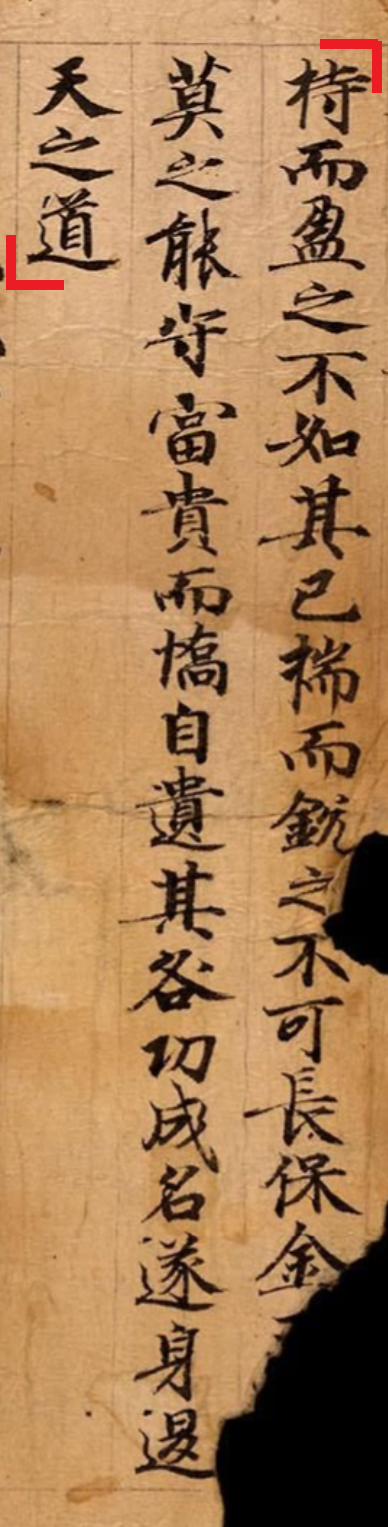 持而盈之不如其已揣而銳之不可長保金
莫之能守富貴而憍自遺其咎功成名遂身退
天之道